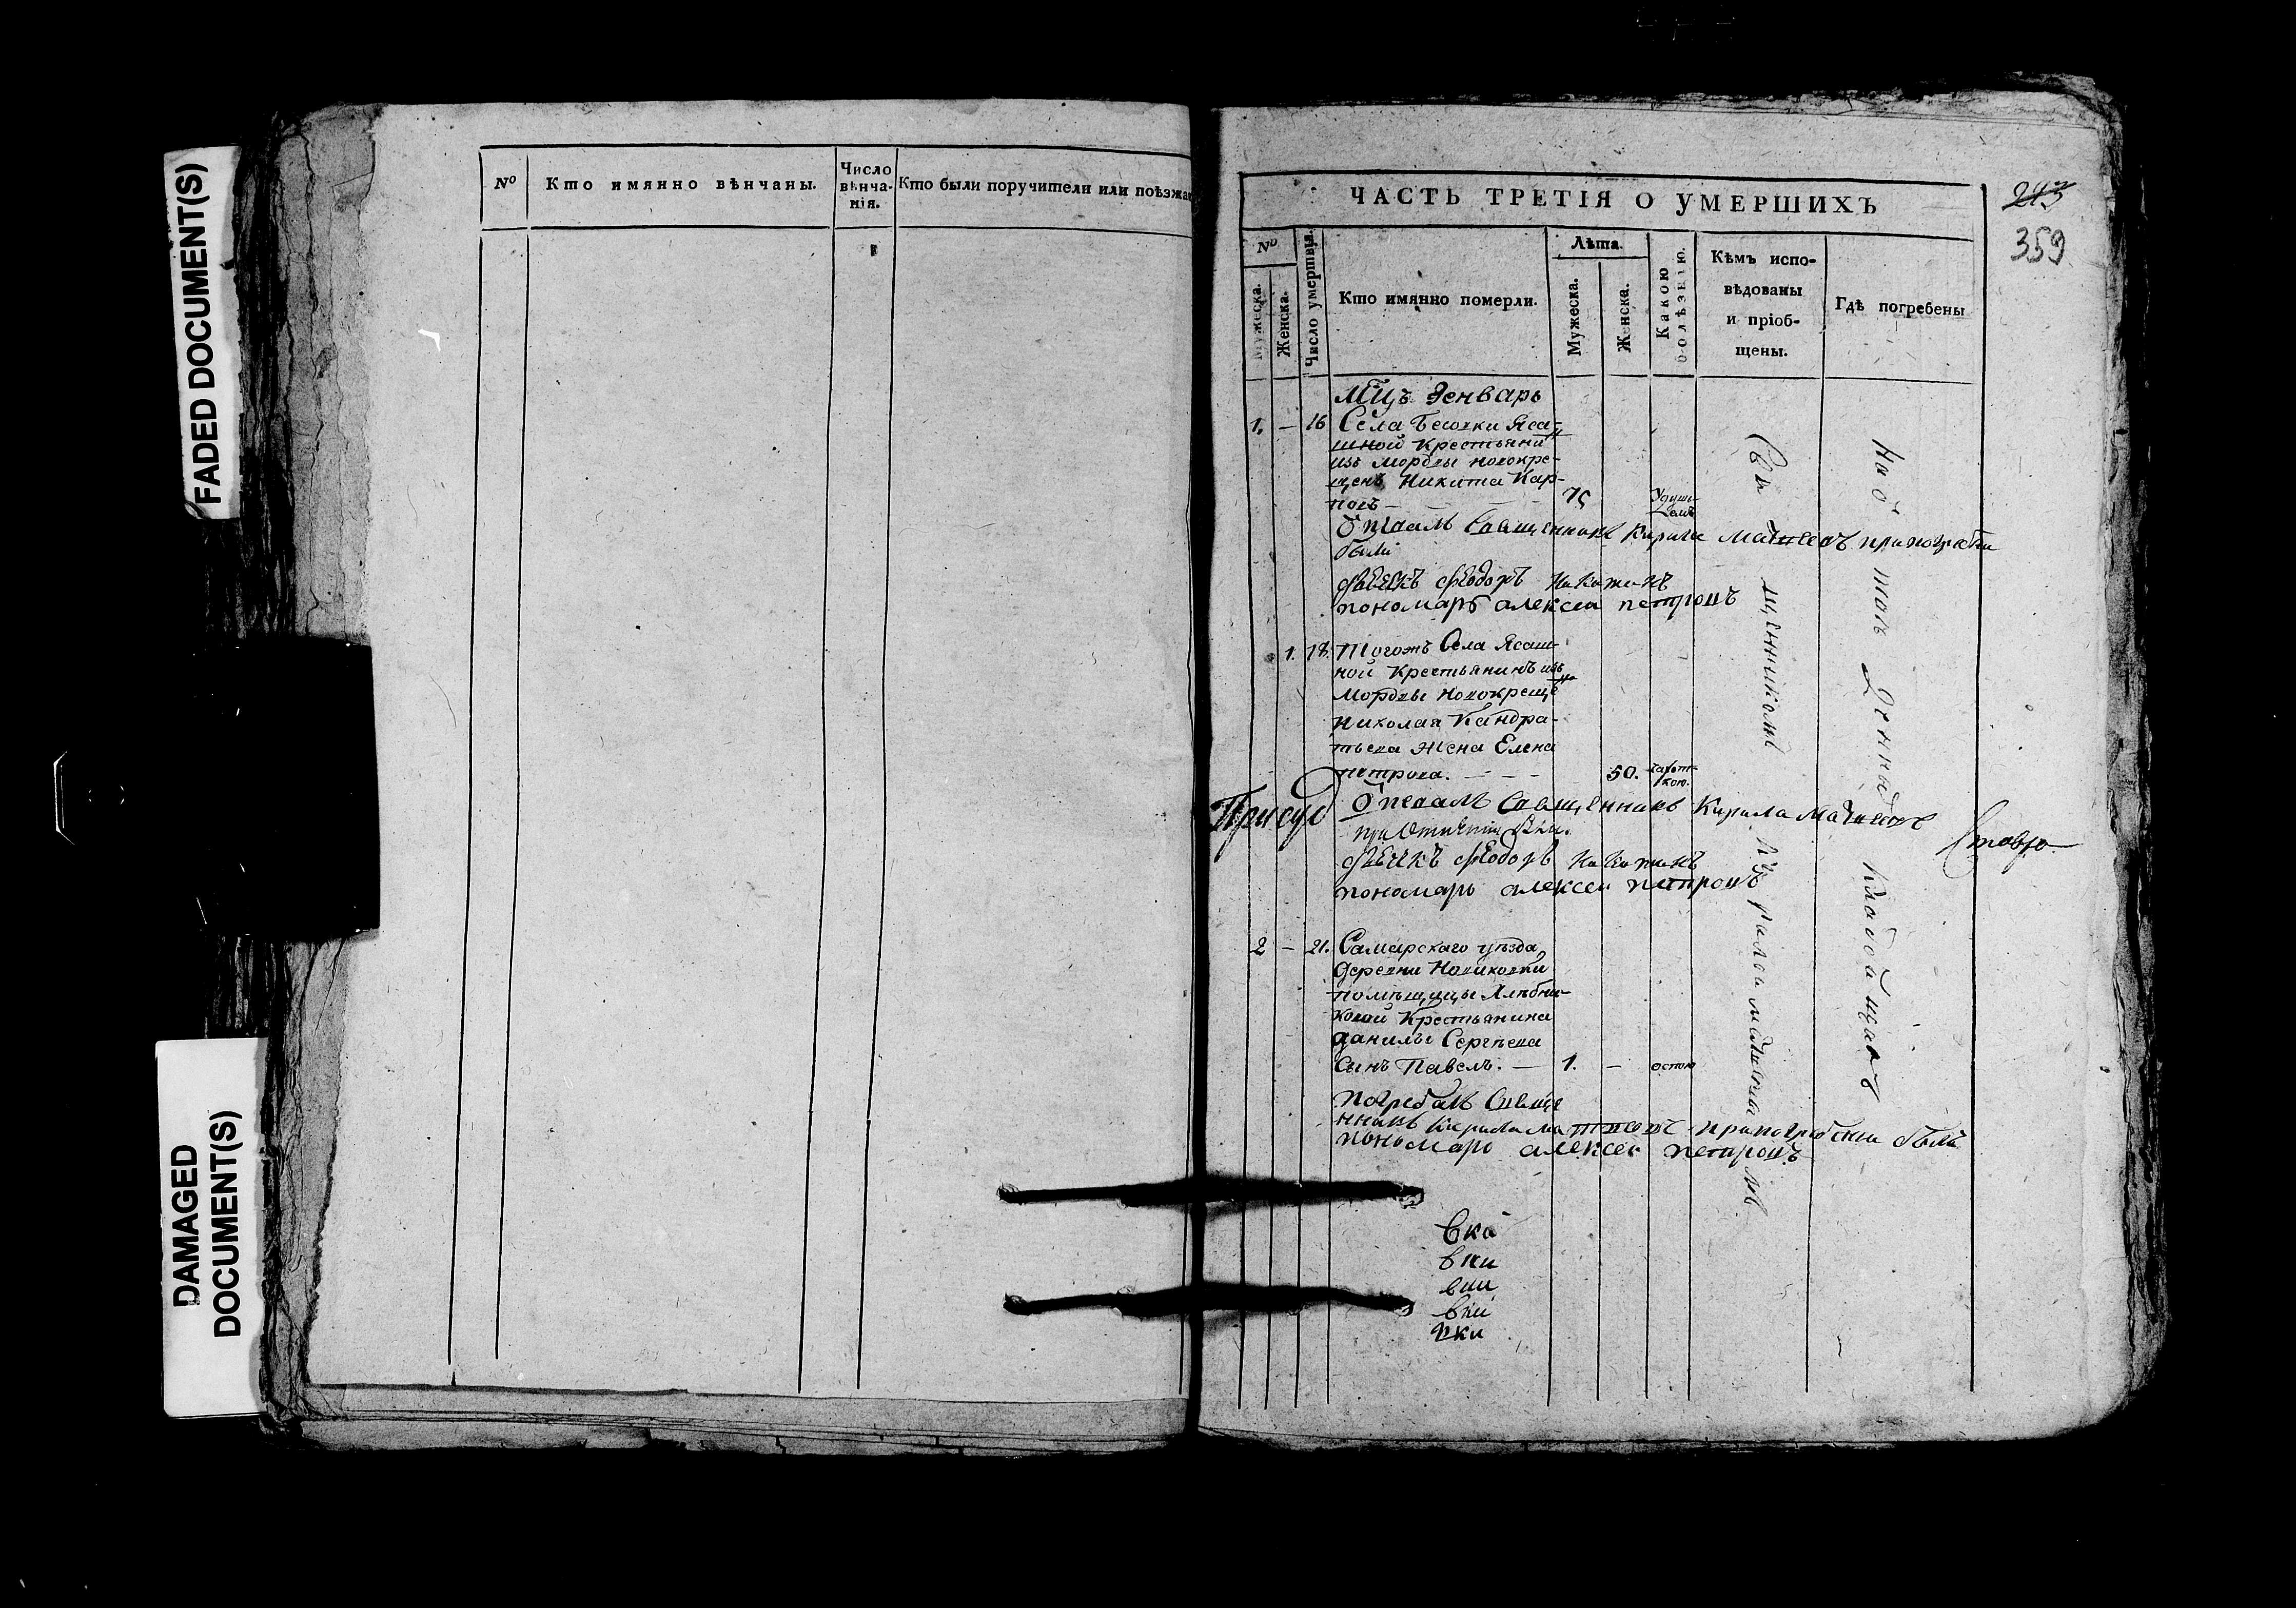 FADED DOCUMENT(S)
DAMAGED
DOCUMENT(S)
№
Кто имянно вѣнчаны.
Число
вѣнча-
нія.
Кто были поручители или поѣзжа
ЧАСТЬ ТРЕТІЯ О УМЕРШИХЪ
243
359
№
Мужеска.
Женска.
Число умертвія.
Кто имянно померли.
Лѣта.
Мужеска.
Женска.
Какою
болѣзнію.
Кѣмъ испо-
вѣдованы
и пріоб-
щены.
Гдѣ погребены
Мцъ Генварь
1. – 16 Села Бесовки Яса-
шной крестьянинъ
изъ мордвы новокре-
щенъ Никита Кар-
повъ – 75 Удушь-
емъ
Отпевалъ Священникъ Кирила Матвеевъ при погребени
были
Федоръ Никитинъ
пономарь алексеи петровъ
1. 18. Тогожъ Села Ясаш-
ной Крестьянинъ изъ
Мордвы новокреще
Николая Кандра-
тьева жена Елена
петрова. – – – 50. чахот-
кою.
Отпевалъ Священникъ Кирила Матвеевъ
при были.
Федоръ Никитинъ
пономарь алексеи петровъ
Присуд
Ставро
2 – 21. Самарскаго уѣзда
деревни Новиковки
помѣщицы Хлѣбни-
ковой Крестьянина
данилы Сергѣева
сынъ Павелъ. – 1. – оспою
погребалъ Свяще
нникъ Кирила матвеевъ при погребени былъ
пономарь алексеи петровъ
Священникомъ Кириломъ матвеевымъ
На отведенномъ кладбищѣ
вка
вки
вки
вки
вки